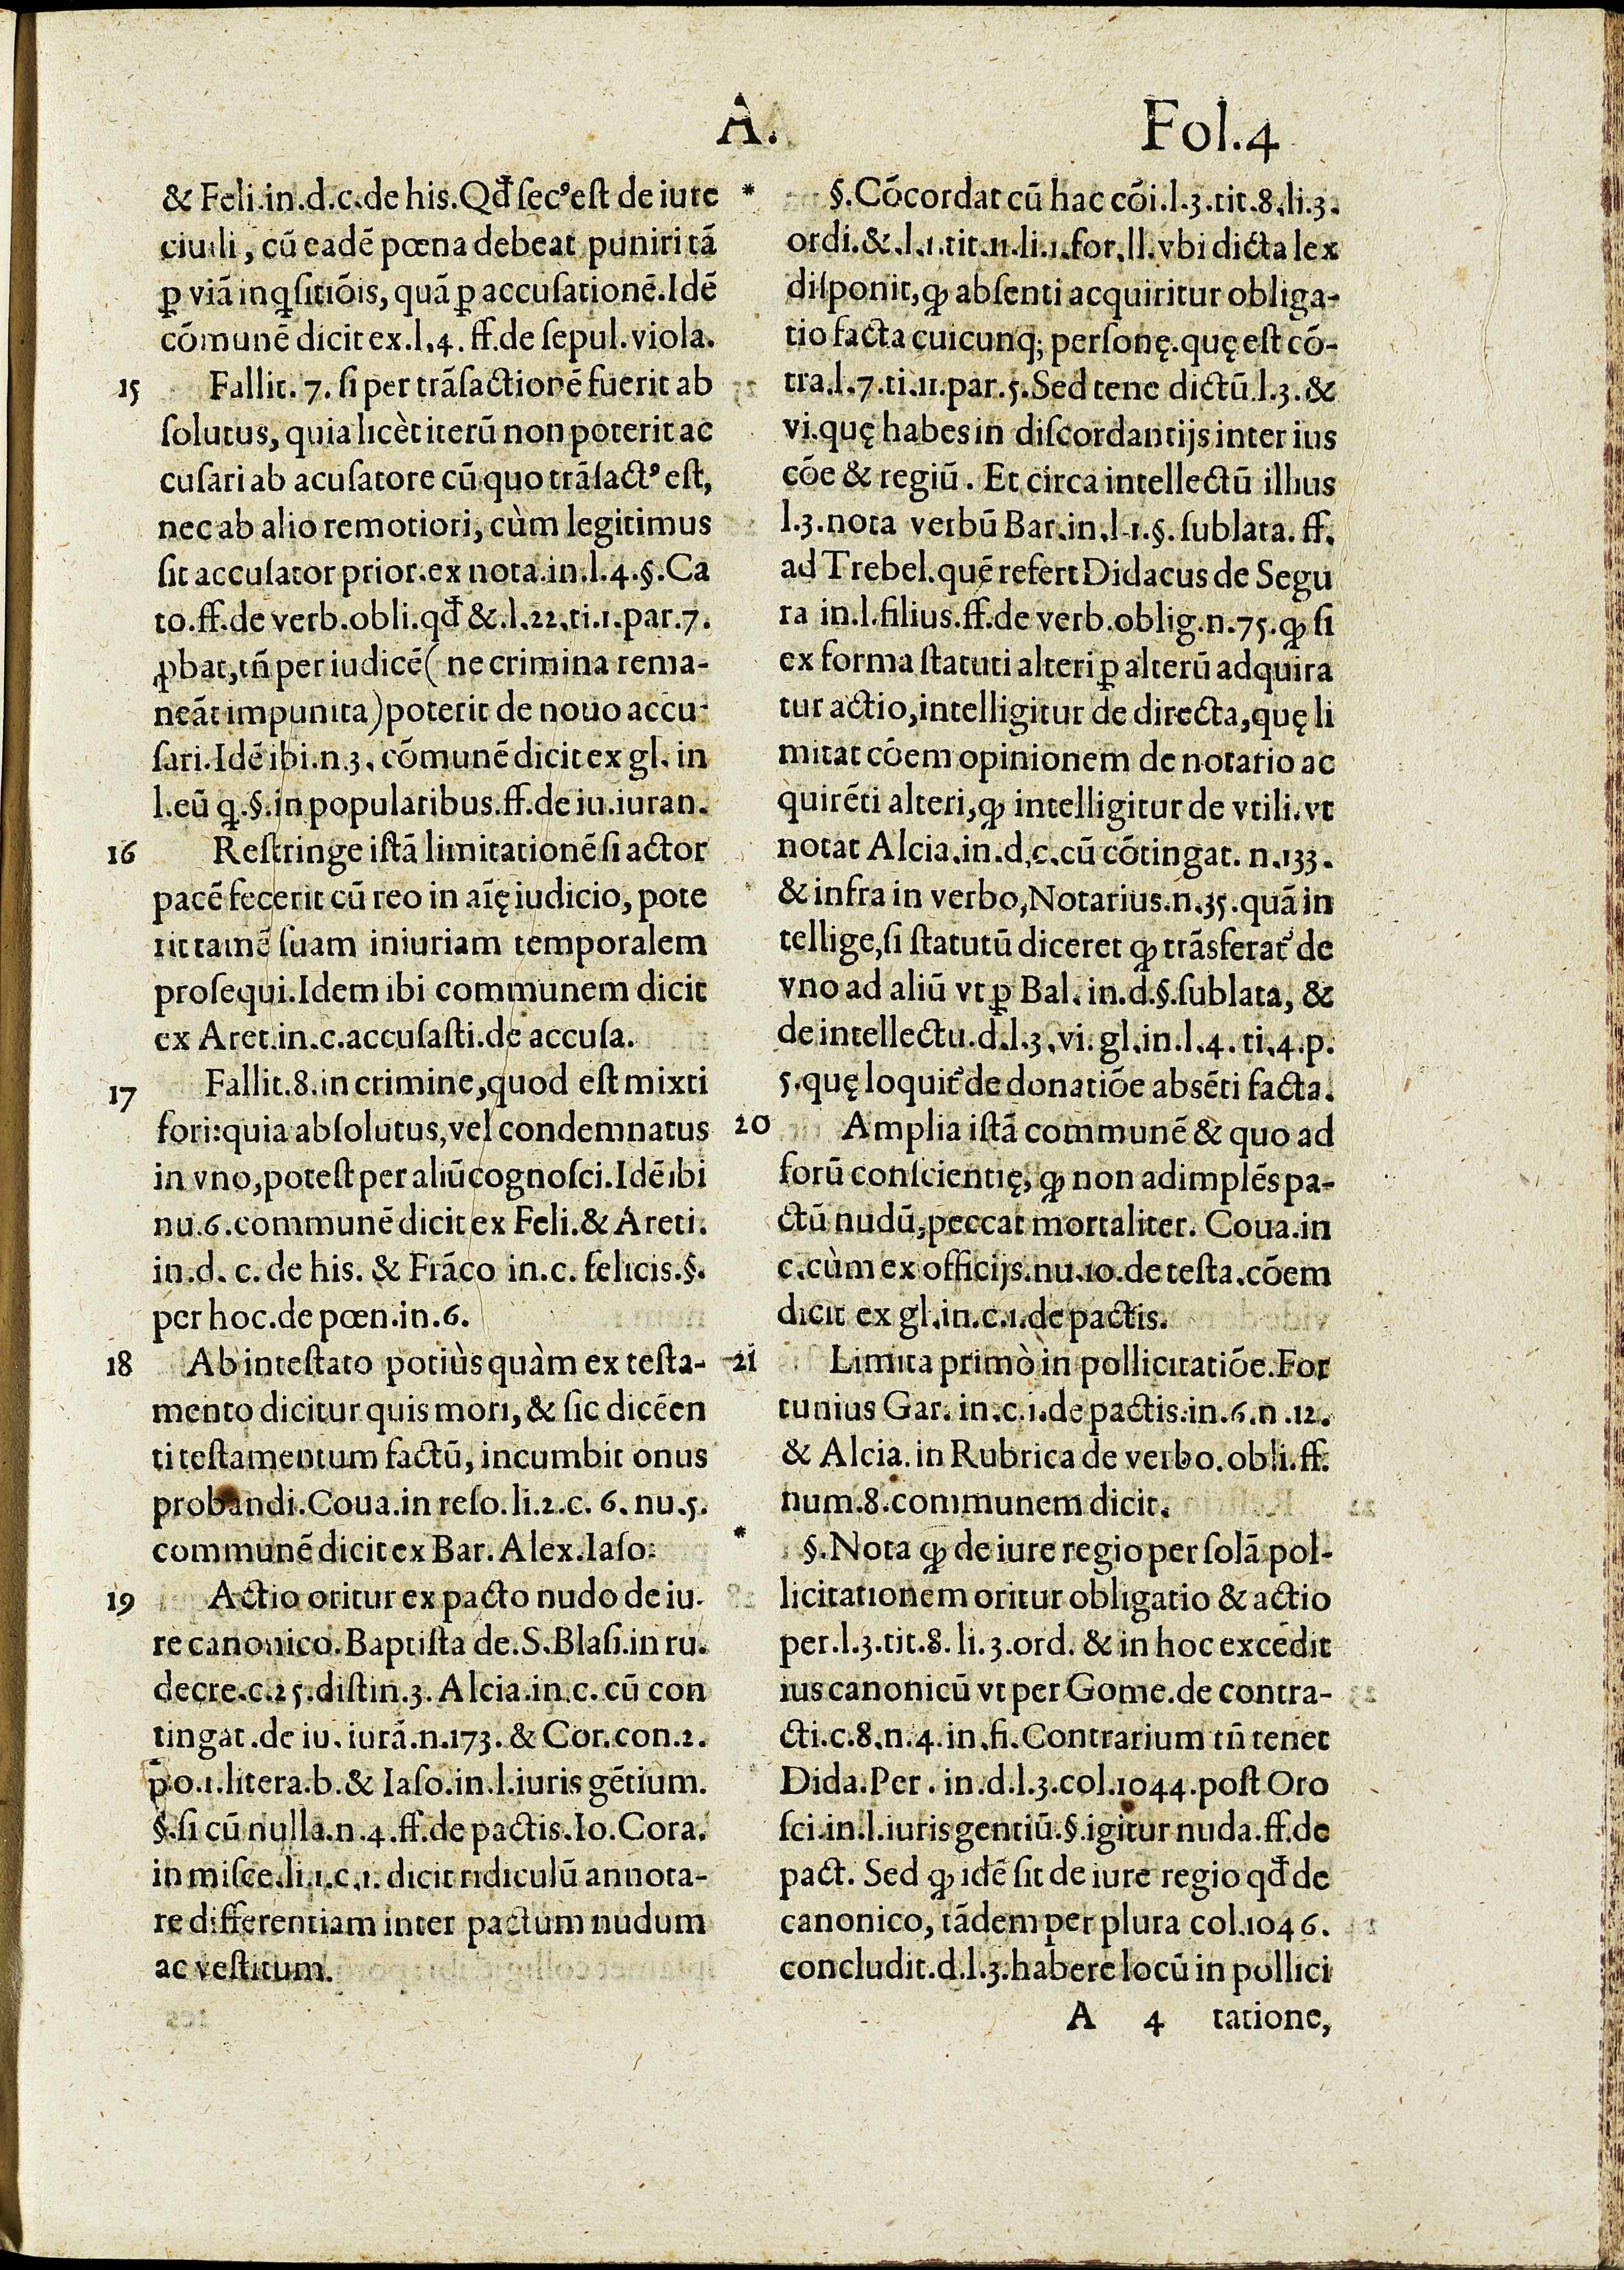 A.
Fol.4
& Feli.in.d.c.de his.Qđ ſecꝰ eſt de iure
ciuili, cū eadē pœna debeat puniri tā
ꝑ viā inq̇ſitiōis, quā ꝑ accuſationē.Idē
cōmunē dicit ex.l.4.ff.de ſepul.viola.
15 Fallit.7.ſi per trāſactionē fuerit ab
ſolutus, quia licèt iterū non poterit ac
cuſari ab acuſatore cū quo trāſactꝰ eſt,
nec ab alio remotiori, cùm legitimus
ſit accuſator prior.ex nota.in.l.4.§.Ca
to.ff.de verb.obli.qđ &.l.22.ti.1.par.7.
ꝓbat,tñ per iudicē( ne crimina rema-
neāt impunita)poterit de nouo accu-
ſari.Idē ibi.n.3.cōmunē dicit ex gl.in
l.eū q.§.in popularibus.ff.de iu.iuran.
16 Reſtringe iſtā limitationē ſi actor
pacē fecerit cū reo in aīę iudicio, pote
rit tamē ſuam iniuriam temporalem
proſequi.Idem ibi communem dicit
ex Aret.in.c.accuſaſti.de accuſa.
17 Fallit.8.in crimine,quod eſt mixti
fori:quia abſolutus,vel condemnatus
in vno,poteſt per aliū cognoſci.Idē ibi
nu.6.communē dicit ex Feli.& Areti.
in.d.c.de his.& Frāco in.c.felicis.§.
per hoc.de pœn.in.6.
18 Ab inteſtato potiùs quàm ex teſta-
mento dicitur quis mori, & ſic dicēen
ti teſtamentum factū, incumbit onus
probandi.Coua.in reſo.li.2.c.6.nu.5.
communē dicit ex Bar.Alex.Iaſo.
19 Actio oritur ex pacto nudo de iu.
re canonico.Baptiſta de.S.Blaſi.in ru.
decre.c.25.diſtin.3.Alcia.in.c.cū con
tingat.de iu.iurā.n.173.& Cor.con.2.
p̄o.1.litera.b.& Iaſo.in.l.iuris gētium.
§.ſi cū nulla.n.4.ff.de pactis.Io.Cora.
in miſce.li.1.c.1.dicit ridiculū annota-
re differentiam inter pactum nudum
ac veſtitum.
* §.Cōcordat cū hac cōi.l.3.tit.8.li.3.
ordi.&.l.1.tit.11.li.1.for.ll.vbi dicta lex
diſponit,ꝙ abſenti acquiritur obliga-
tio facta cuicunq; perſonę.quę eſt cō-
tra.l.7.ti.11.par.5.Sed tene dictū.l.3.&
vi.quę habes in diſcordantijs inter ius
cōe & regiū. Et circa intellectū illius
l.3.nota verbū Bar.in.l.1.§.ſublata.ff.
ad Trebel.quē refert Didacus de Segu
ra in.l.filius.ff.de verb.oblig.n.75.ꝙ ſi
ex forma ſtatuti alteri ꝑ alterū adquira
tur actio,intelligitur de directa,quę li
mitat cōem opinionem de notario ac
quirēti alteri,ꝙ intelligitur de vtili.vt
notat Alcia.in.d.c.cū cōtingat.n.133.
& infra in verbo,Notarius.n.35.quā in
tellige,ſi ſtatutū diceret ꝙ trāsferat᷑ de
vno ad aliū vt ꝑ Bal.in.d.§.ſublata, &
de intellectu.d.l.3.vi.gl.in.l.4.ti.4.p.
5.quę loquit᷑ de donatiōe abſēti facta.
20 Amplia iſtā communē & quo ad
forū conſcientię, ꝙ non adimplēs pa-
ctū nudū,peccat mortaliter. Coua.in
c.cùm ex officijs.nu.10.de teſta.cōem
dicit ex gl.in.c.1.de pactis.
21 Limita primò in pollicitatiōe.For
tunius Gar.in.c.1.de pactis.in.6.n.12.
& Alcia.in Rubrica de verbo.obli.ff.
num.8.communem dicit.
* §.Nota ꝙ de iure regio per ſolā pol-
licitationem oritur obligatio & actio
per.l.3.tit.8.li.3.ord.& in hoc excedit
ius canonicū vt per Gome.de contra-
cti.c.8.n.4.in.fi.Contrarium tñ tenet
Dida.Per.in.d.l.3.col.1044.poſt Oro
ſci.in.l.iuris gentiū.§.igitur nuda.ff.de
pact. Sed ꝙ idē ſit de iure regio qđ de
canonico, tādem per plura col.1046.
concludit.d.l.3.habere locū in pollici
A 4 tatione,